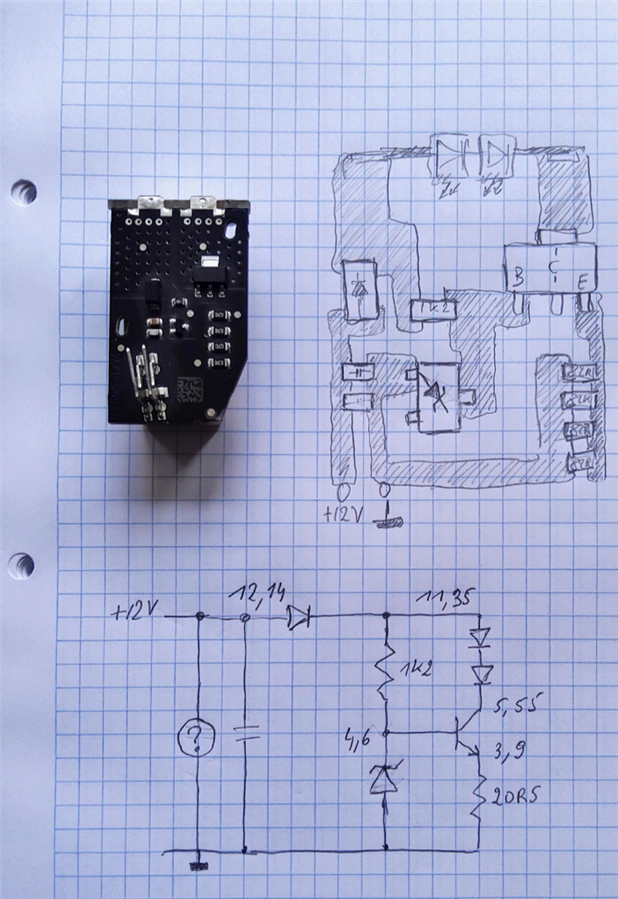 1k2
B
C
E
82R
82R
82R
82R
+12V
12,14
+12V
11,35
1k2
5,55
?
4,6
3,9
20R5